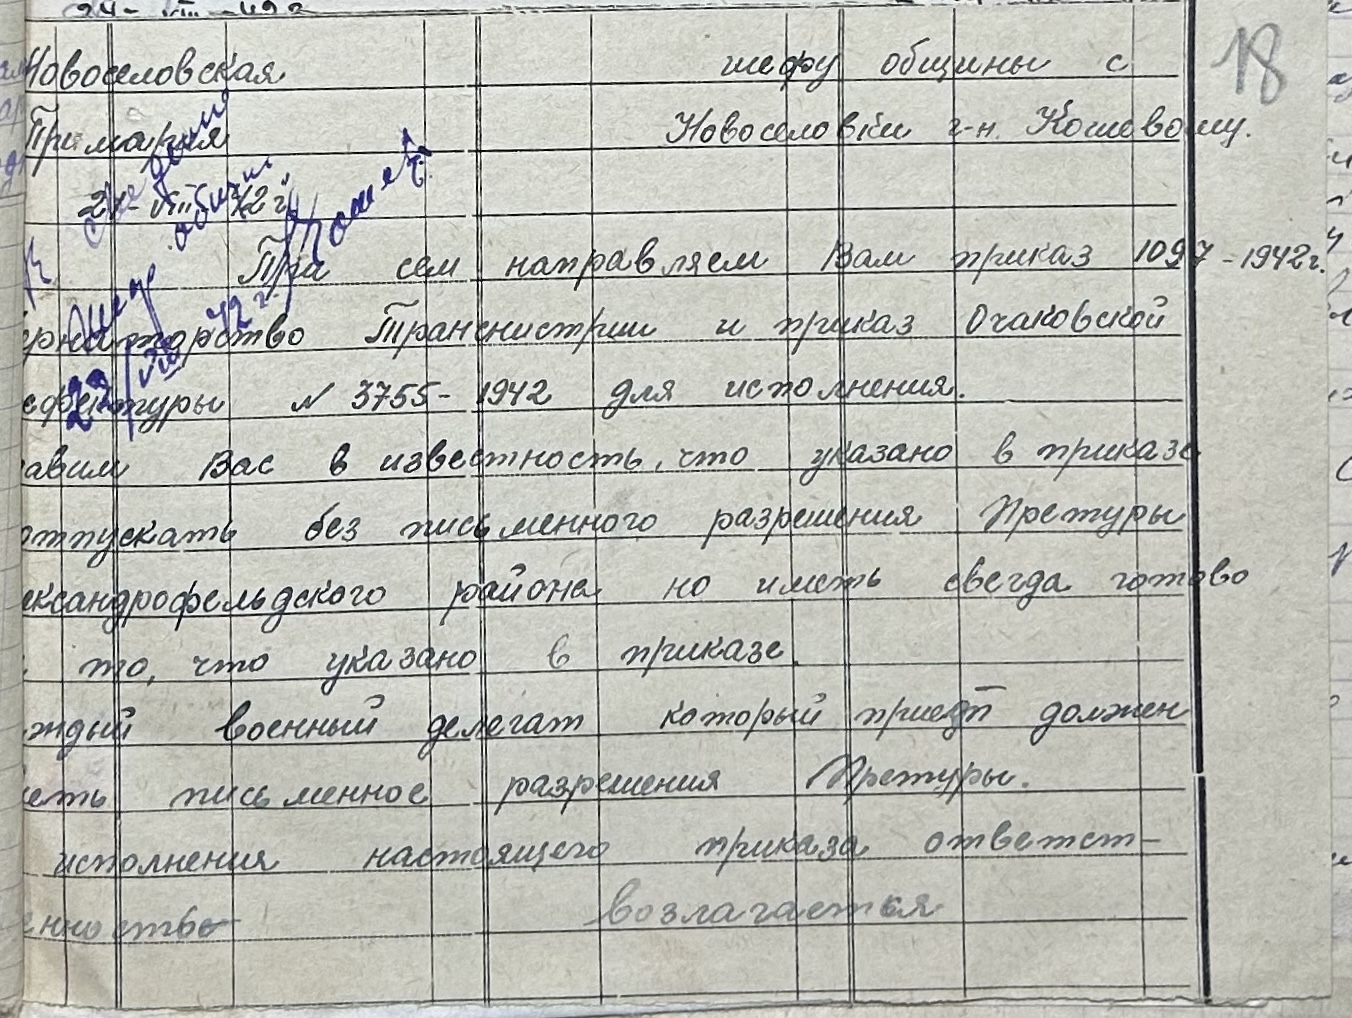 24- VIII -42г
Новоселовская шефу общины с
Примария Новоселовки г-н. Кошевому.
24- VIII 42 г. 18
При сем направляем Вам приказ 1097-1942г.
ернаторство Транснистрии и приказ Очаковской
ефектуры № 3755- 1942 для исполнения.
авим Вас в известность, что указано в приказе
отпускать без письменного разрешения Претуры
ександрофельдского района но иметь свегда готово
то, что указано в приказе.
ждый военный делегат который приедт должен
еть письменное разрешения Претуры.
исполнения настоящего приказа ответст-
енность возлагается
Шефу общин
22/VIII 42 г.